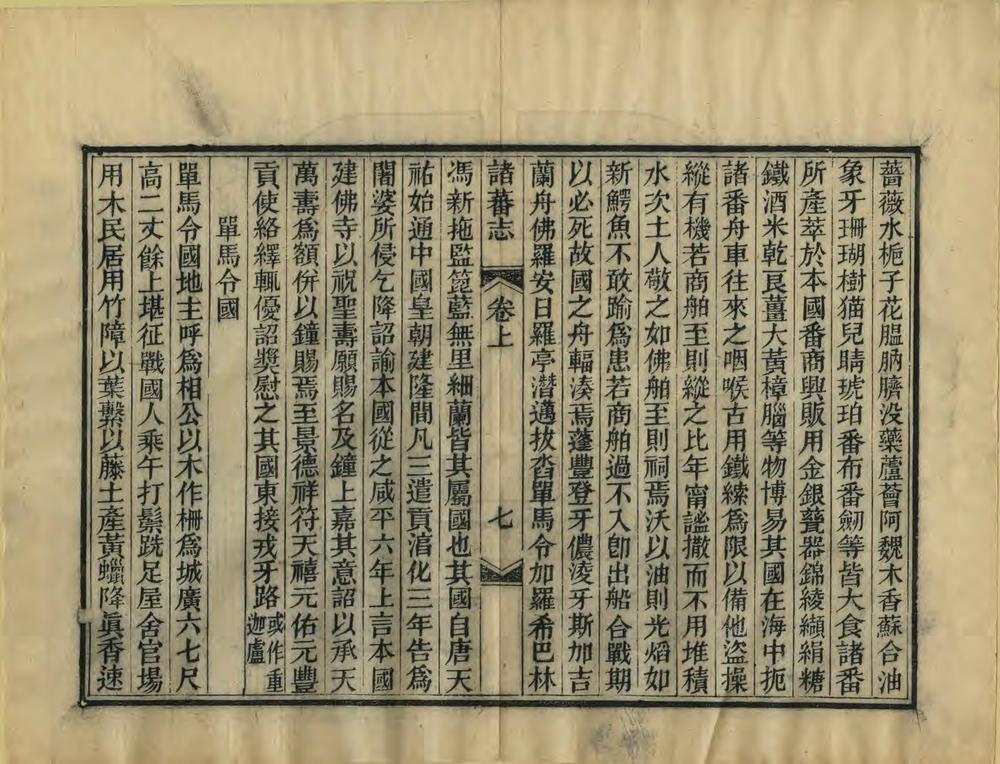 薔薇水梔子花腽肭臍没藥蘆薈阿魏木香蘇合油
象牙珊瑚樹猫兒睛琥珀番布番劒等皆大食諸番
所產萃於本國番商興販用金銀甆器錦綾纈絹糖
鐵酒米乾良薑大黃樟腦等物博易其國在海中扼
諸番舟車往來之咽喉古用鐵綀為限以備他盜操
縱有機若商舶至則縱之比年甯謐撒而不用堆積
水次土人敬之如佛舶至則祠焉沃以油則光焰如
新鰐魚不敢踰爲患若商舶過不入卽出船合戰期
以必死故國之舟輻湊焉蓬豐登牙儂淩牙斯加吉
蘭舟佛羅安日羅亭潛邁拔沓單馬令加羅希巴林
諸蕃志
卷上
七
馮新拖監箆藍無里細蘭皆其屬國也其國自唐天
祐始通中國皇朝建隆間凡三遣貢淯化三年告爲
闍婆所侵乞降詔諭本國從之咸平六年上言本國
建佛寺以祝聖壽願賜名及鐘上嘉其意詔以承天
萬壽爲額併以鐘賜焉至景德祥符天禧元佑元豐
貢使絡繹輒優詔獎慰之其國東接戎牙路或作重迦盧
單馬令國
單馬令國地主呼爲相公以木作柵爲城廣六七尺
高二丈餘上堪征戰國人乘午打鬃跣足屋舍官場
用木民居用竹障以葉繫以藤土產黃蠟降眞香速